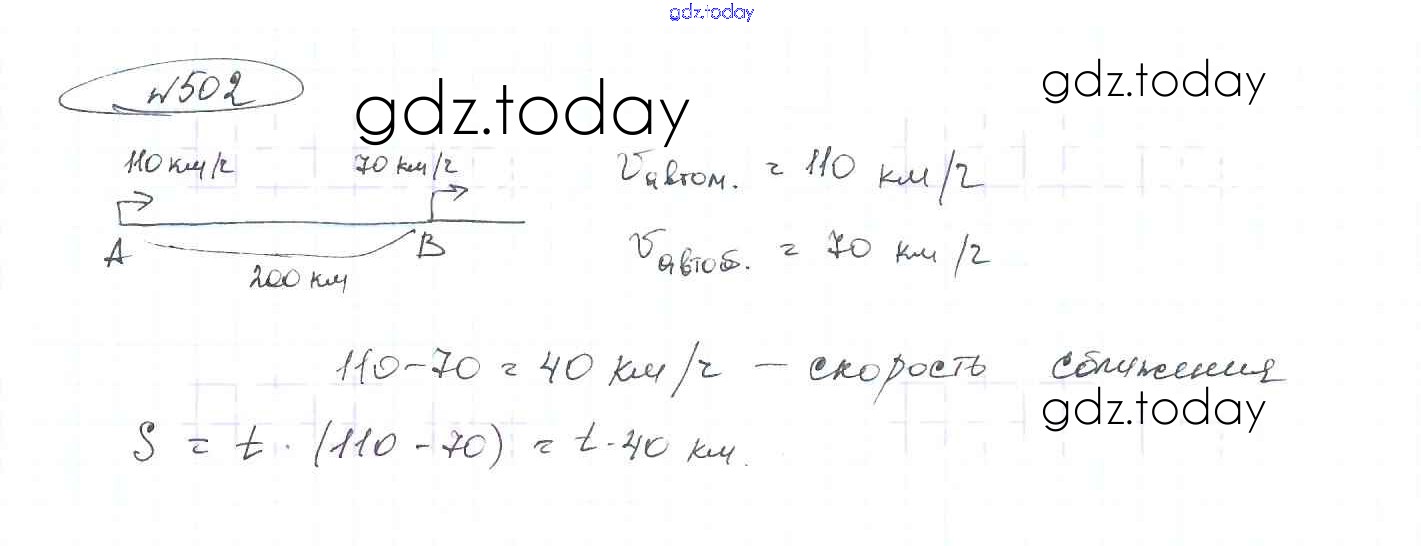 gdz.today
№502
gdz.today
gdz.today
110 км/ч
70 км/ч
A
B
200 км
Vавтом. = 110 км/ч
Vавтоб. = 70 км/ч
110-70 = 40 км/ч — скорость сближения
gdz.today
S = t · (110 - 70) = t · 40 км.